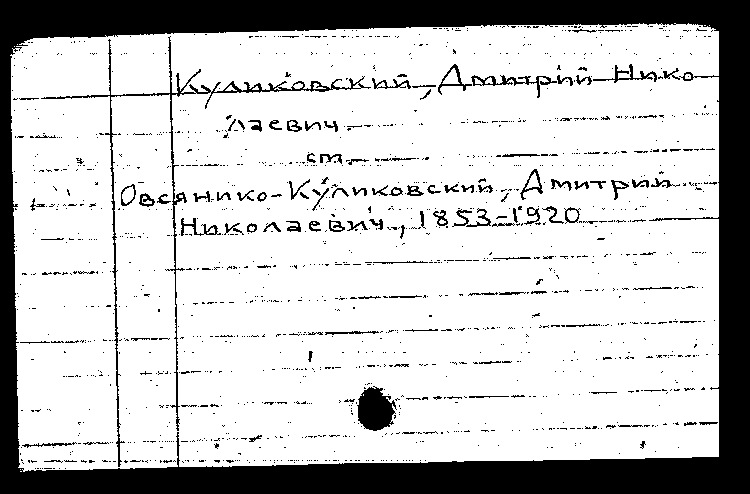 Куликовский, Дмитрий Нико
лаевич
см.
Овсянико-Куликовский, Дмитрий
Николаевич, 1853-1920